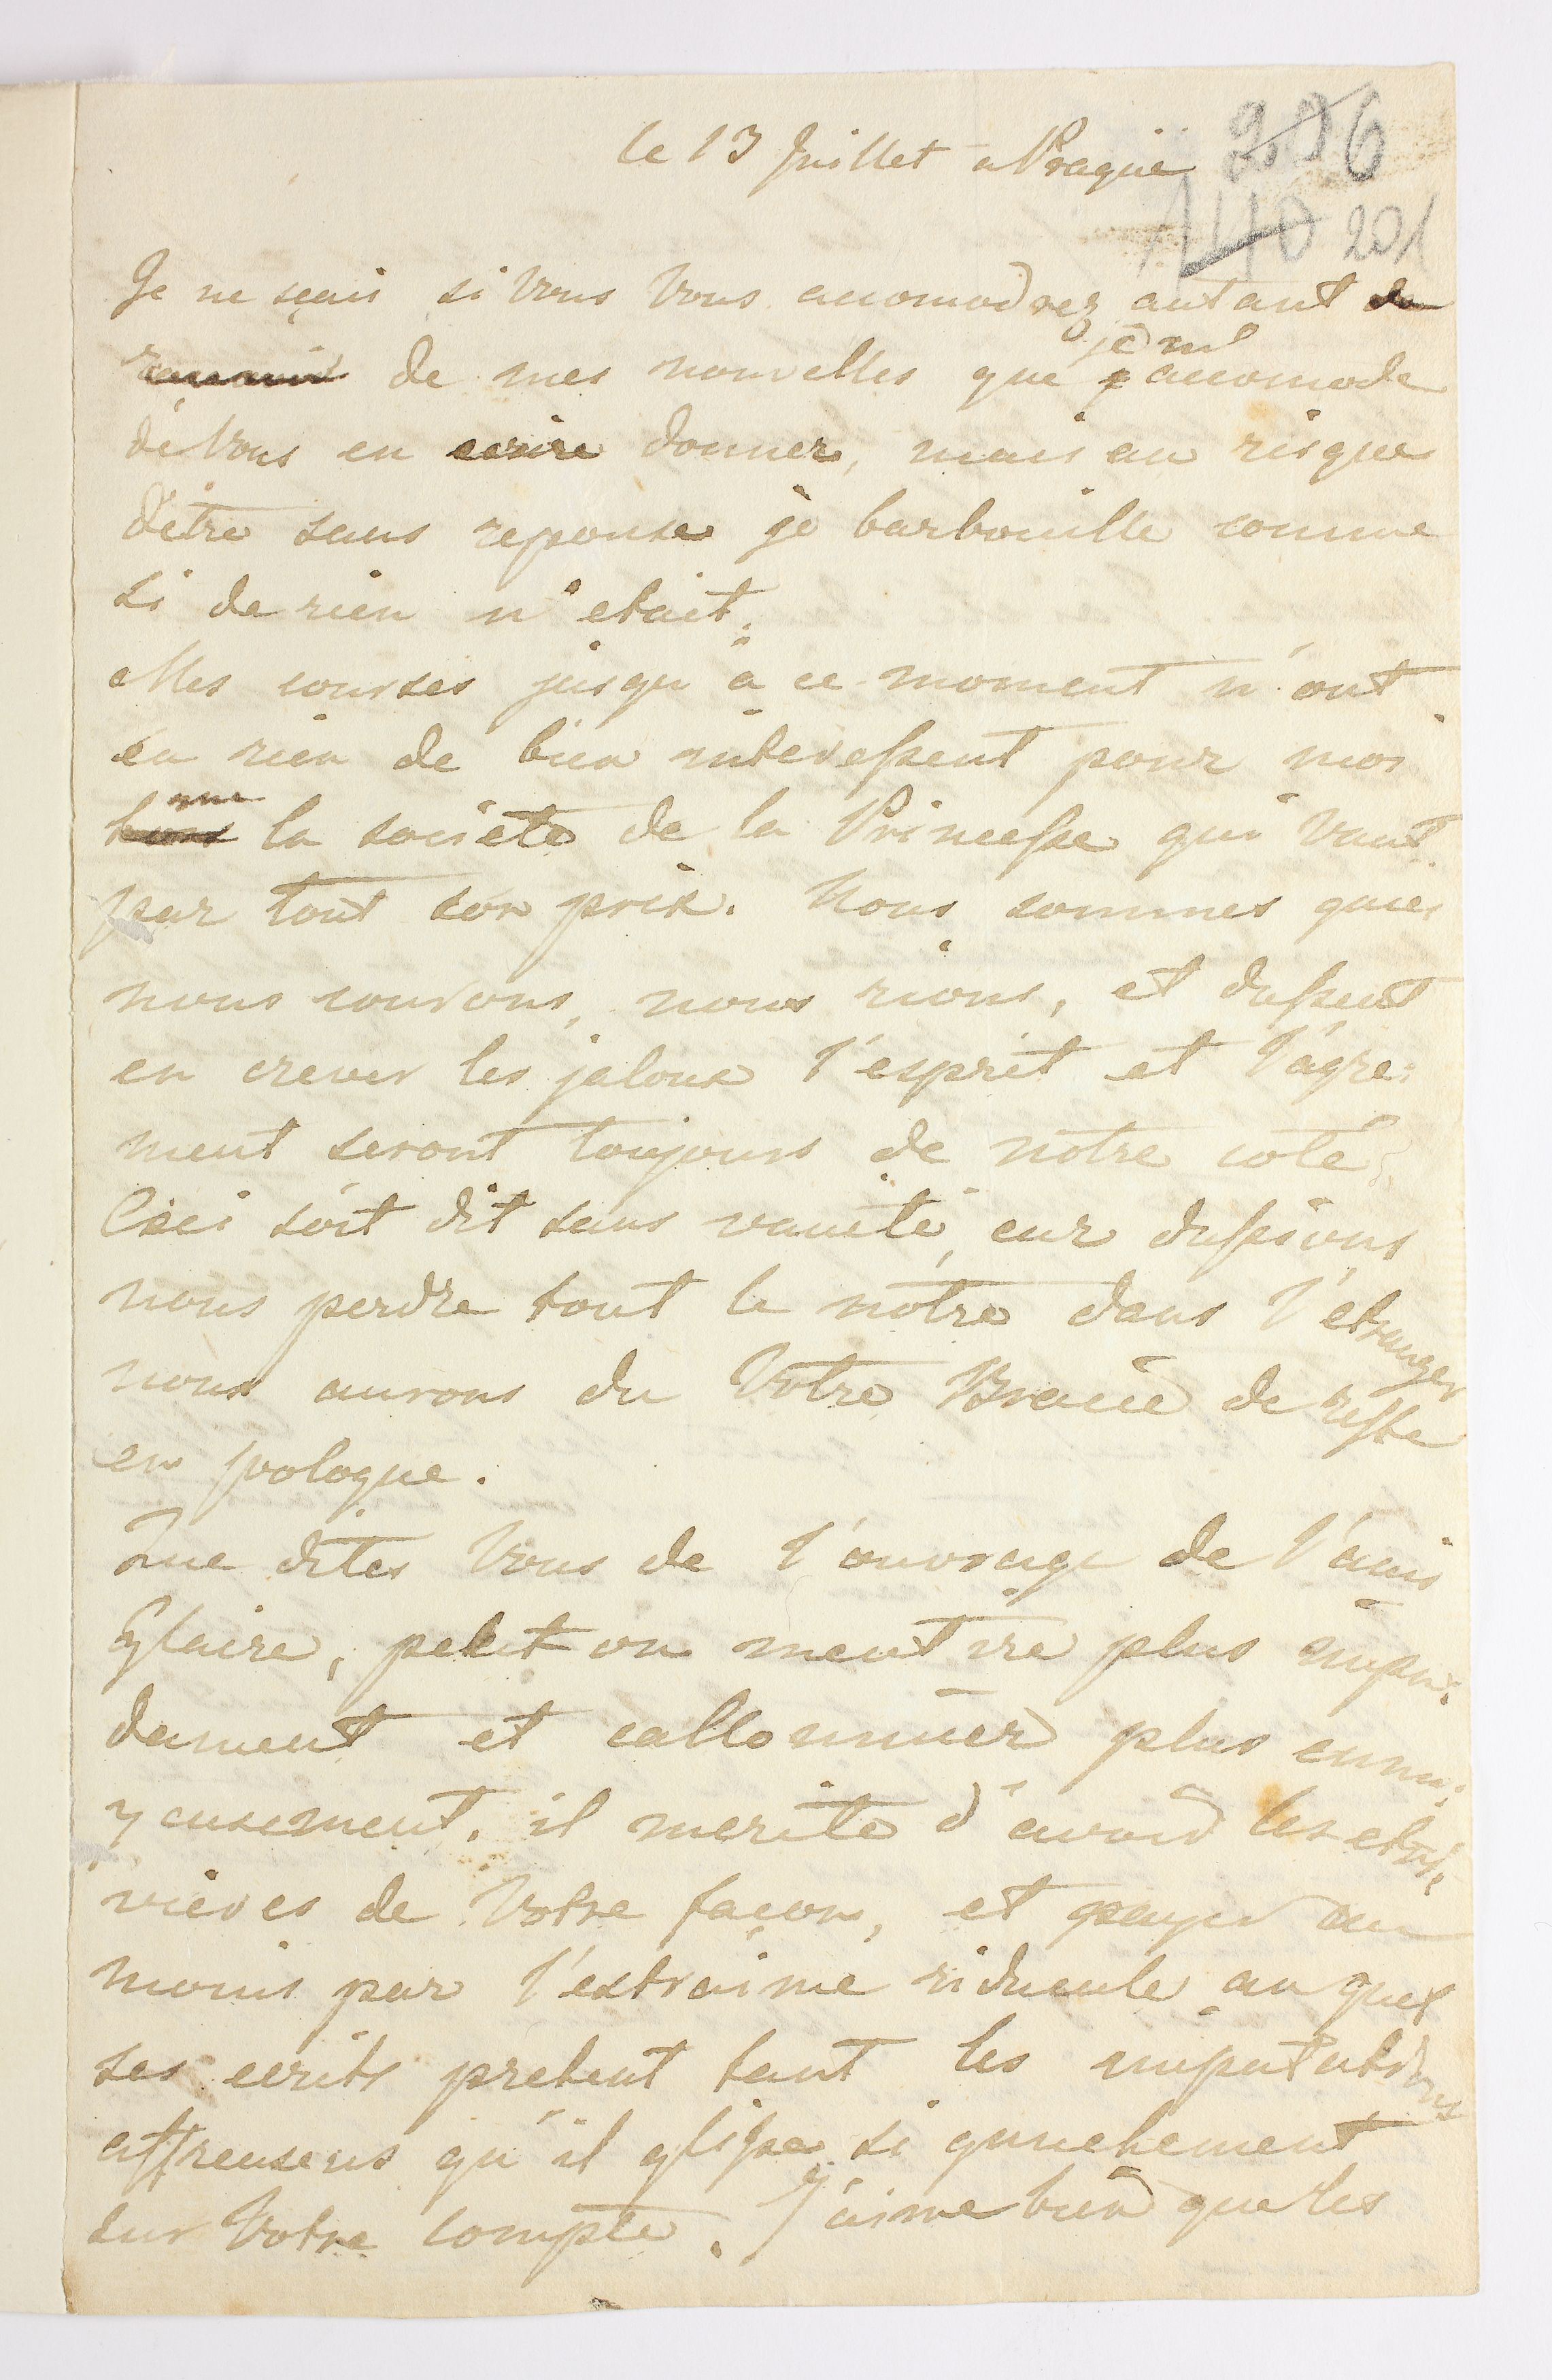 le 13 Juillet a Prague
206
140 201
Je ne sçais si Vous Vous accomodrez autant
je me
de mes nouvelles que accomode
de Vous en ecrire donner, mais au risque
d'être sans reponse je barbouille comme
si de rien n'etait.
Mes courses jusqu'a ce moment n'ont
eu rien de bien interessent pour moi
la societe de la Princesse qui Vaut
par tout son prix. Nous sommes gaies
nous courons, nous rions, et dussent
en crever les jaloux l'esprit et l'agre:
ment seront toujours de notre coté
Ceci soit dit sans vanité, car dussions
nous perdre tout le nôtre dans l'etranger
nous aurons du Votre de reste
en pologne.
Que dites Vous de l'ouvrage de l'ami
Glaire, peut on mentire plus impu:
dament et callomnier plus ennu:
yeusement. il merite d'avoir les etri:
vieres de Votre façon, et payer au
moins par l'extraime riducule au quel
ses ecrits pretent tant les imputations
affreuses qu'il glisse si gauchement
sur Votre compte. J'aime bien que les